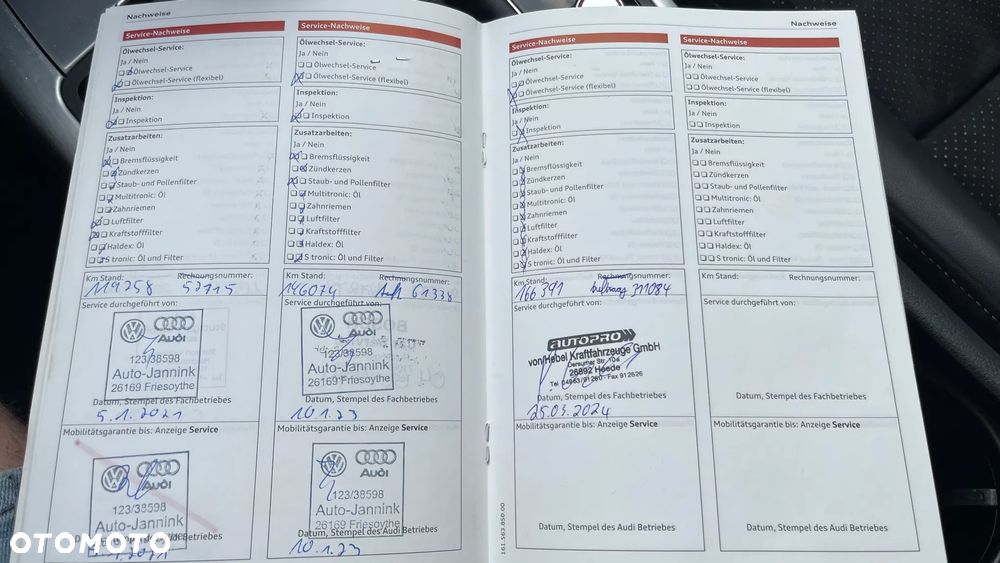 Nachweise
Service-Nachweise
Ölwechsel-Service:
Ja / Nein
Ölwechsel-Service
Ölwechsel-Service (flexibel)
Inspektion:
Ja / Nein
Inspektion
Zusatzarbeiten:
Ja / Nein
Bremsflüssigkeit
Zündkerzen
Staub- und Pollenfilter
Multitronic: Öl
Zahnriemen
Luftfilter
Kraftstofffilter
Haldex: Öl
S tronic: Öl und Filter
Km Stand: Rechnungsnummer:
119258 52715
Service durchgeführt von:
Audi
123/38598
Auto-Jannink
26169 Friesoythe
Datum, Stempel des Fachbetriebes
5.1.2021
Mobilitätsgarantie bis: Anzeige Service
Audi
123/38598
Auto-Jannink
26169 Friesoythe
Service-Nachweise
Ölwechsel-Service:
Ja / Nein
Ölwechsel-Service
Ölwechsel-Service (flexibel)
Inspektion:
Ja / Nein
Inspektion
Zusatzarbeiten:
Ja / Nein
Bremsflüssigkeit
Zündkerzen
Staub- und Pollenfilter
Multitronic: Öl
Zahnriemen
Luftfilter
Kraftstofffilter
Haldex: Öl
S tronic: Öl und Filter
Km Stand: Rechnungsnummer:
146074 61338
Service durchgeführt von:
Audi
123/38598
Auto-Jannink
26169 Friesoythe
Datum, Stempel des Fachbetriebes
10.1.23
Mobilitätsgarantie bis: Anzeige Service
Audi
123/38598
Auto-Jannink
26169 Friesoythe
Datum, Stempel des Audi Betriebes
10.1.23
Nachweise
Service-Nachweise
Ölwechsel-Service:
Ja / Nein
Ölwechsel-Service
Ölwechsel-Service (flexibel)
Inspektion:
Ja / Nein
Inspektion
Zusatzarbeiten:
Ja / Nein
Bremsflüssigkeit
Zündkerzen
Staub- und Pollenfilter
Multitronic: Öl
Zahnriemen
Luftfilter
Kraftstofffilter
Haldex: Öl
S tronic: Öl und Filter
Km Stand: Rechnungsnummer:
166391 311084
Service durchgeführt von:
AUTOPRO
von Hebel Kraftfahrzeuge GmbH
Dersumer Str. 10a
26892 Heede
Tel 04963/91260 - Fax 912626
Datum, Stempel des Fachbetriebes
25.03.2024
Mobilitätsgarantie bis: Anzeige Service
Datum, Stempel des Audi Betriebes
161.563.850.00
Service-Nachweise
Ölwechsel-Service:
Ja / Nein
Ölwechsel-Service
Ölwechsel-Service (flexibel)
Inspektion:
Ja / Nein
Inspektion
Zusatzarbeiten:
Ja / Nein
Bremsflüssigkeit
Zündkerzen
Staub- und Pollenfilter
Multitronic: Öl
Zahnriemen
Luftfilter
Kraftstofffilter
Haldex: Öl
S tronic: Öl und Filter
Km Stand: Rechnungsnummer:
Service durchgeführt von:
Datum, Stempel des Fachbetriebes
Mobilitätsgarantie bis: Anzeige Service
Datum, Stempel des Audi Betriebes
OTOMOTO